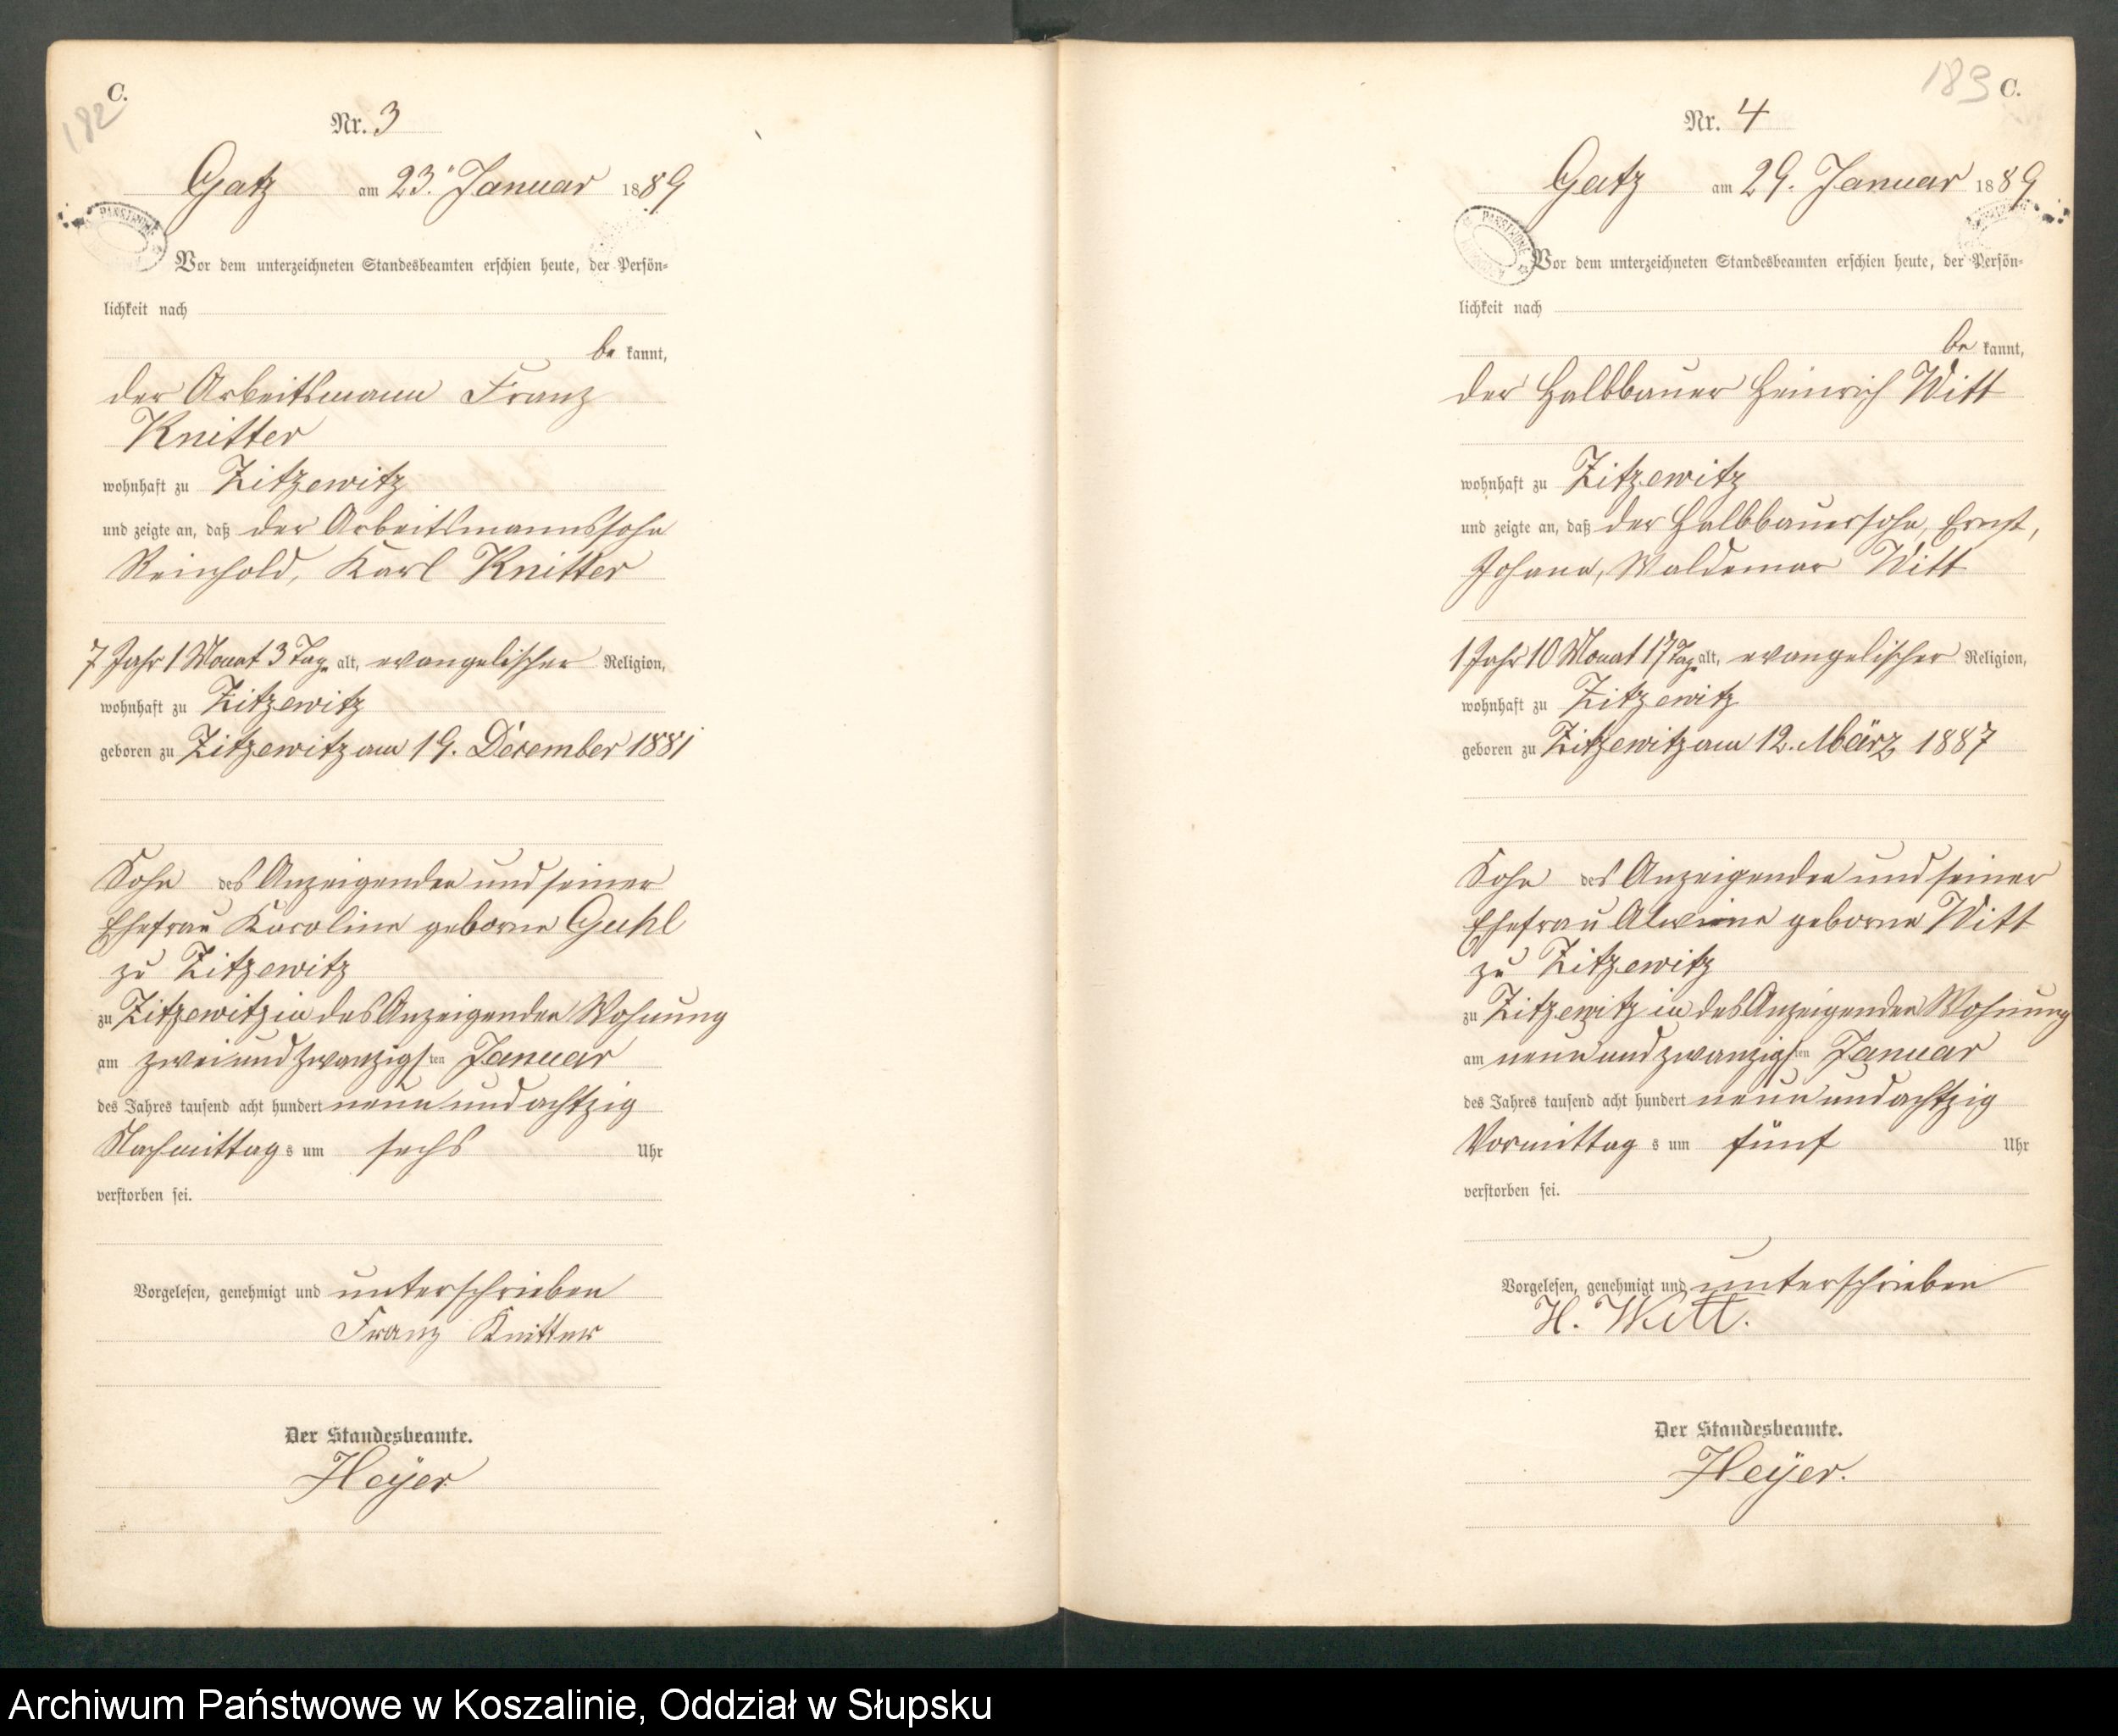 C.
182
Nr. 3
Gatz am 23. Januar 1889
Vor dem unterzeichneten Standesbeamten erschien heute, der Persön-
lichkeit nach
be kannt,
der Arbeitsmann Franz
Knitter
wohnhaft zu Zitzewitz
und zeigte an, daß der Arbeitsmannssohn
Reinhold, Karl Knitter
7 Jahr 1 Monat 3 Tage alt, evangelischer Religion,
wohnhaft zu Zitzewitz
geboren zu Zitzewitz am 19. December 1881
Sohn des Anzeigenden und seiner
Ehefrau Karoline geborne Guhl
zu Zitzewitz
zu Zitzewitz in des Anzeigenden Wohnung
am zwei und zwanzigsten Januar
des Jahres tausend acht hundert neun und achtzig
Nachmittags um sechs Uhr
verstorben sei.
Vorgelesen, genehmigt und unterschrieben
Franz Knitter
Der Standesbeamte.
Heyer
183 C.
Nr. 4
Gatz am 29. Januar 1889
Vor dem unterzeichneten Standesbeamten erschien heute, der Persön-
lichkeit nach
be kannt,
der Halbbauer Heinrich Witt
wohnhaft zu Zitzewitz
und zeigte an, daß der Halbbauersohn, Ernst,
Johann, Waldemar Witt
1 Jahr 10 Monat 17 Tage alt, evangelischer Religion,
wohnhaft zu Zitzewitz
geboren zu Zitzewitz am 12. März 1887
Sohn des Anzeigenden und seiner
Ehefrau Alwine geborne Witt
zu Zitzewitz
zu Zitzewitz in des Anzeigenden Wohnung
am neun und zwanzigsten Januar
des Jahres tausend acht hundert neun und achtzig
Vormittag s um fünf Uhr
verstorben sei.
Vorgelesen, genehmigt und unterschrieben
H. Witt.
Der Standesbeamte.
Heyer.
Archiwum Państwowe w Koszalinie, Oddział w Słupsku